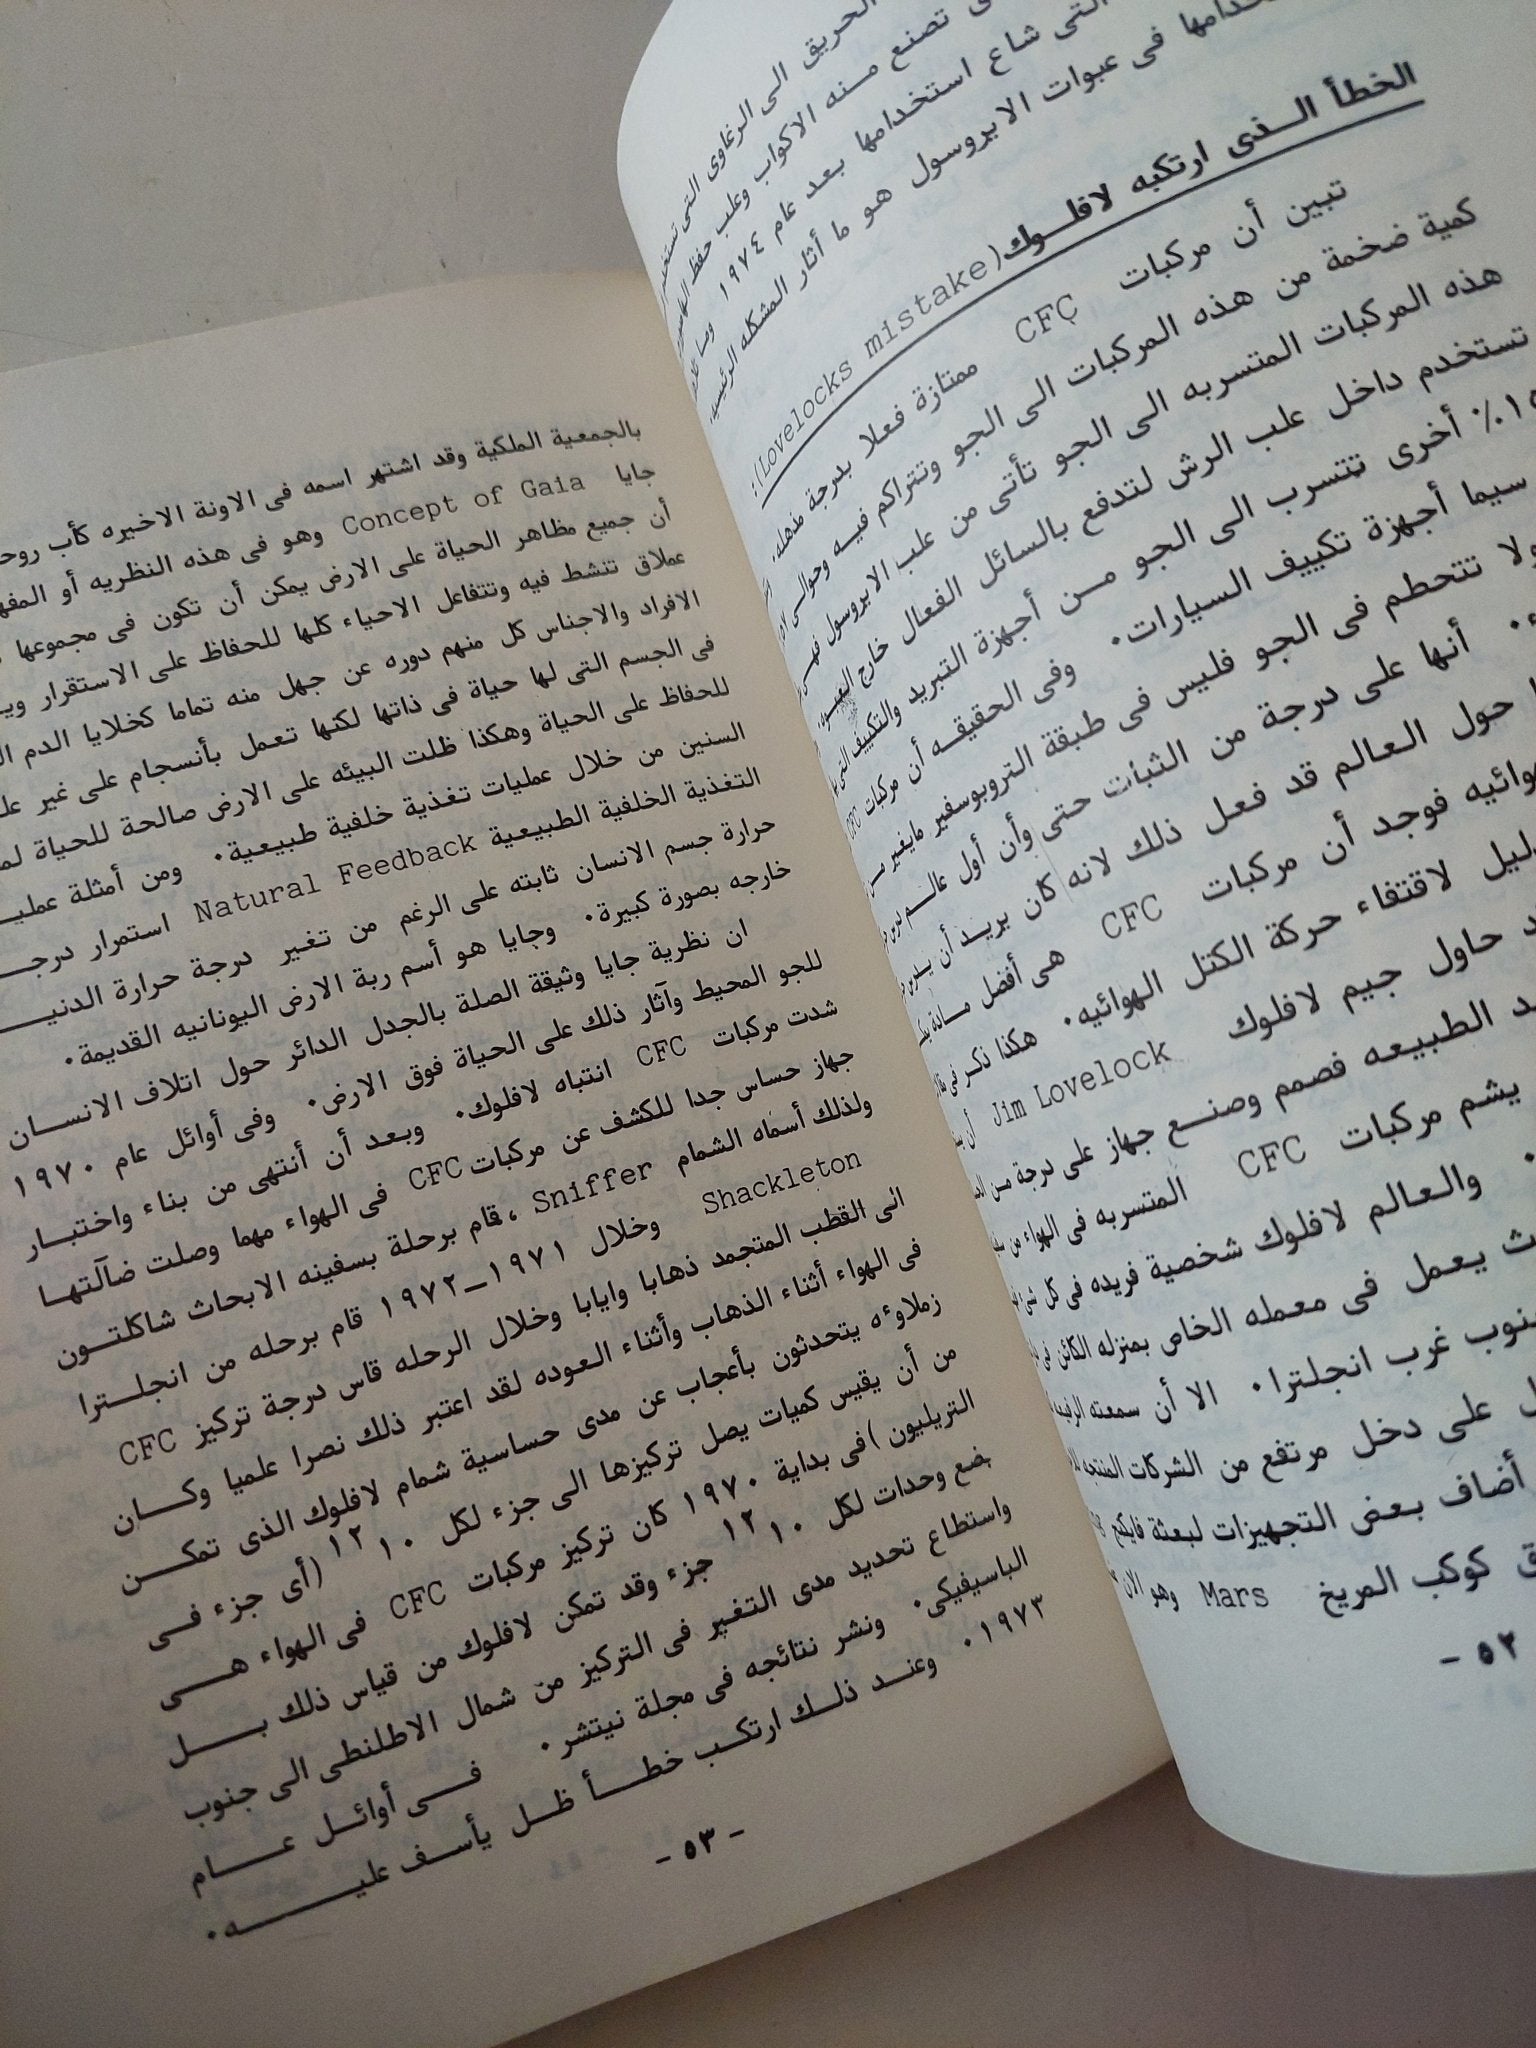 الحريق الى الرغاوى التى
تصنع منه الاكواب وعلب حفظ
التى شاع استخدامها بعد عام ١٩٧٤
فى عبوات الايروسول هو ما أثار المشكله الرئيسيه
الخطأ الذى ارتكبه لافلوك (Lovelocks mistake):
تبين أن مركبات CFC ممتازة فعلا بدرجة مذهله.
كمية ضخمة من هذه المركبات الى الجو وتتراكم فيه وحوالى
هذه المركبات المتسربه الى الجو تأتى من علب الايروسول فهى
تستخدم داخل علب الرش لتدفع بالسائل الفعال خارج
١٥٪ أخرى تتسرب الى الجو من أجهزة التبريد والتكييف التى
سيما أجهزة تكييف السيارات. وفى الحقيقه أن مركبات CFC
ولا تتحطم فى الجو فليس فى طبقة التروبوسفير مايغير من
أنها على درجة من الثبات حتى وأن أول عالم
حول العالم قد فعل ذلك لانه كان يريد أن
فوجد أن مركبات CFC هى أفضل مادة
لاقتفاء حركة الكتل الهوائيه. هكذا ذكر فى
حاول جيم لافلوك Jim Lovelock أن
الطبيعه فصمم وصنع جهاز على درجة من
يشم مركبات CFC المتسربه فى الهواء من
والعالم لافلوك شخصية فريده فى كل
يعمل فى معمله الخاص بمنزله الكائن فى
غرب انجلترا. الا أن سمعته
على دخل مرتفع من الشركات المنتجه
أضاف بعض التجهيزات لبعثة فايكنج
كوكب المريخ Mars وهو الان
٥٢ -
بالجمعية الملكية وقد اشتهر اسمه فى الاونة الاخيره كأب
جايا Concept of Gaia وهو فى هذه النظريه أو
أن جميع مظاهر الحياة على الارض يمكن أن تكون فى مجموعها
عملاق تنشط فيه وتتفاعل الاحياء كلها للحفاظ على الاستقرار
الافراد والاجناس كل منهم دوره عن جهل منه تماما كخلايا الدم
فى الجسم التى لها حياة فى ذاتها لكنها تعمل بأنسجام على غير
للحفاظ على الحياة وهكذا ظلت البيئه على الارض صالحة للحياة
السنين من خلال عمليات تغذية خلفية طبيعية. ومن أمثلة
التغذية الخلفية الطبيعية Natural Feedback استمرار
حرارة جسم الانسان ثابته على الرغم من تغير درجة حرارة
خارجه بصورة كبيرة. وجايا هو أسم ربة الارض اليونانيه القديمة.
ان نظرية جايا وثيقة الصلة بالجدل الدائر حول اتلاف الانسان
للجو المحيط وآثار ذلك على الحياة فوق الارض. وفى أوائل عام ١٩٧٠
شدت مركبات CFC انتباه لافلوك. وبعد أن أنتهى من بناء واختبار
جهاز حساس جدا للكشف عن مركبات CFC فى الهواء مهما وصلت ضآلتها
ولذلك أسماه الشمام Sniffer ، قام برحلة بسفينه الابحاث شاكلتون
Shackleton وخلال ١٩٧١-١٩٧٢ قام برحله من انجلترا
الى القطب المتجمد ذهابا وايابا وخلال الرحله قاس درجة تركيز CFC
فى الهواء أثناء الذهاب وأثناء العوده لقد اعتبر ذلك نصرا علميا وكان
زملاوءه يتحدثون بأعجاب عن مدى حساسية شمام لافلوك الذى تمكن
من أن يقيس كميات يصل تركيزها الى جزء لكل ١٠ ١٢ (أى جزء فى
التريليون )فى بداية ١٩٧٠ كان تركيز مركبات CFC فى الهواء هى
بضع وحدات لكل ١٠ ١٢ جزء وقد تمكن لافلوك من قياس ذلك بل
واستطاع تحديد مدى التغير فى التركيز من شمال الاطلنطى الى جنوب
الباسيفيكى. ونشر نتائجه فى مجلة نيتشر. فى أوائل عام
١٩٧٣. وعند ذلك ارتكب خطأ ظل يأسف عليه.
- ٥٣ -